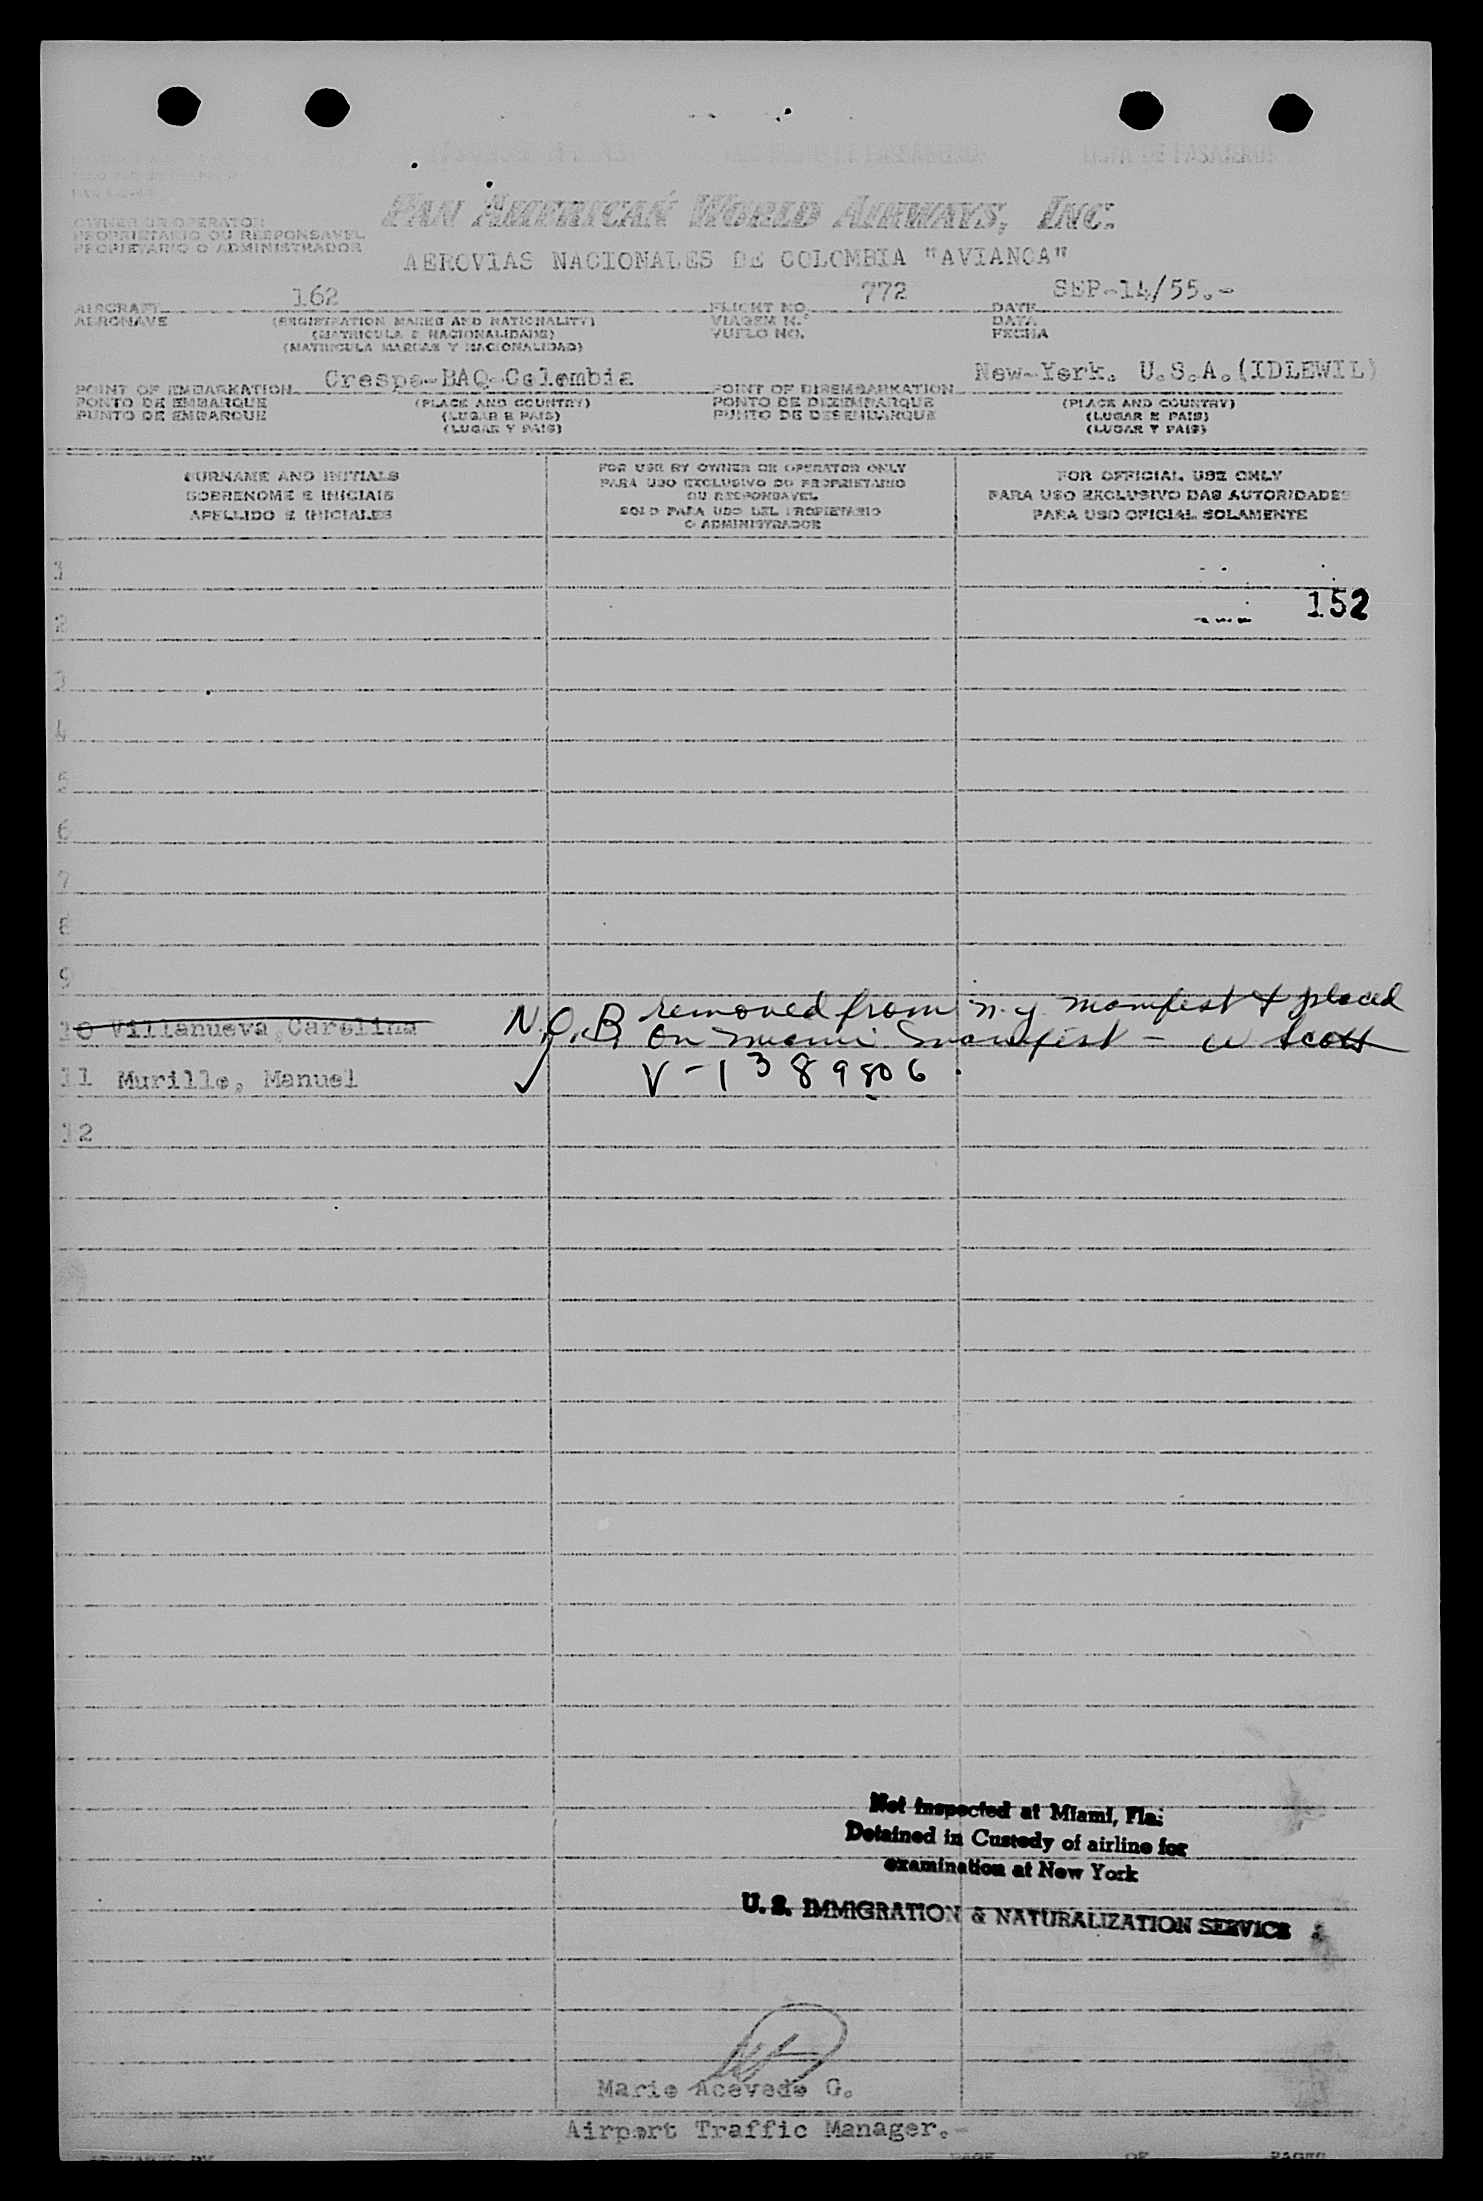 OWNER OR OPERATOR
PROPRIETARIO OU RESPONSAVEL
PROPIETARIO O ADMINISTRADOR
PAN AMERICAN WORLD AIRWAYS, INC.
AEROVIAS NACIONALES DE COLOMBIA "AVIANCA"
AIRCRAFT 162 FLIGHT NO. 772 DATE SEP-14/55.-
AERONAVE (REGISTRATION MARKS AND NATIONALITY) VIAGEM N.º DATA
(MATRICULA E NACIONALIDADE) VUELO NO. FECHA
(MATRICULA MARCAS Y NACIONALIDAD)
POINT OF EMBARKATION Crespo-BAQ-Colombia POINT OF DISEMBARKATION New-York. U.S.A.(IDLEWIL)
PONTO DE EMBARQUE (PLACE AND COUNTRY) PONTO DE DEZEMBARQUE (PLACE AND COUNTRY)
PUNTO DE EMBARQUE (LUGAR E PAIS) PUNTO DE DESEMBARQUE (LUGAR E PAIS)
(LUGAR Y PAIS) (LUGAR Y PAIS)
SURNAME AND INITIALS
SOBRENOME E INICIAIS
APELLIDO E INICIALES
FOR USE BY OWNER OR OPERATOR ONLY
PARA USO EXCLUSIVO DO PROPRIETARIO
OU RESPONSAVEL
SOLO PARA USO DEL PROPIETARIO
O ADMINISTRADOR
FOR OFFICIAL USE ONLY
PARA USO EXCLUSIVO DAS AUTORIDADES
PARA USO OFICIAL SOLAMENTE
1
152
2
3
4
5
6
7
8
9
10 Villanueva, Carolina N.O.B. removed from N.Y. manifest & placed
on Miami manifest - W Scott
11 Murillo, Manuel ✓ V-1389806
12
Not inspected at Miami, Fla.
Detained in Custody of airline for
examination at New York
U. S. IMMIGRATION & NATURALIZATION SERVICE
Mario Acevedo G.
Airport Traffic Manager.-
PREPARED BY PAGE OF PAGES